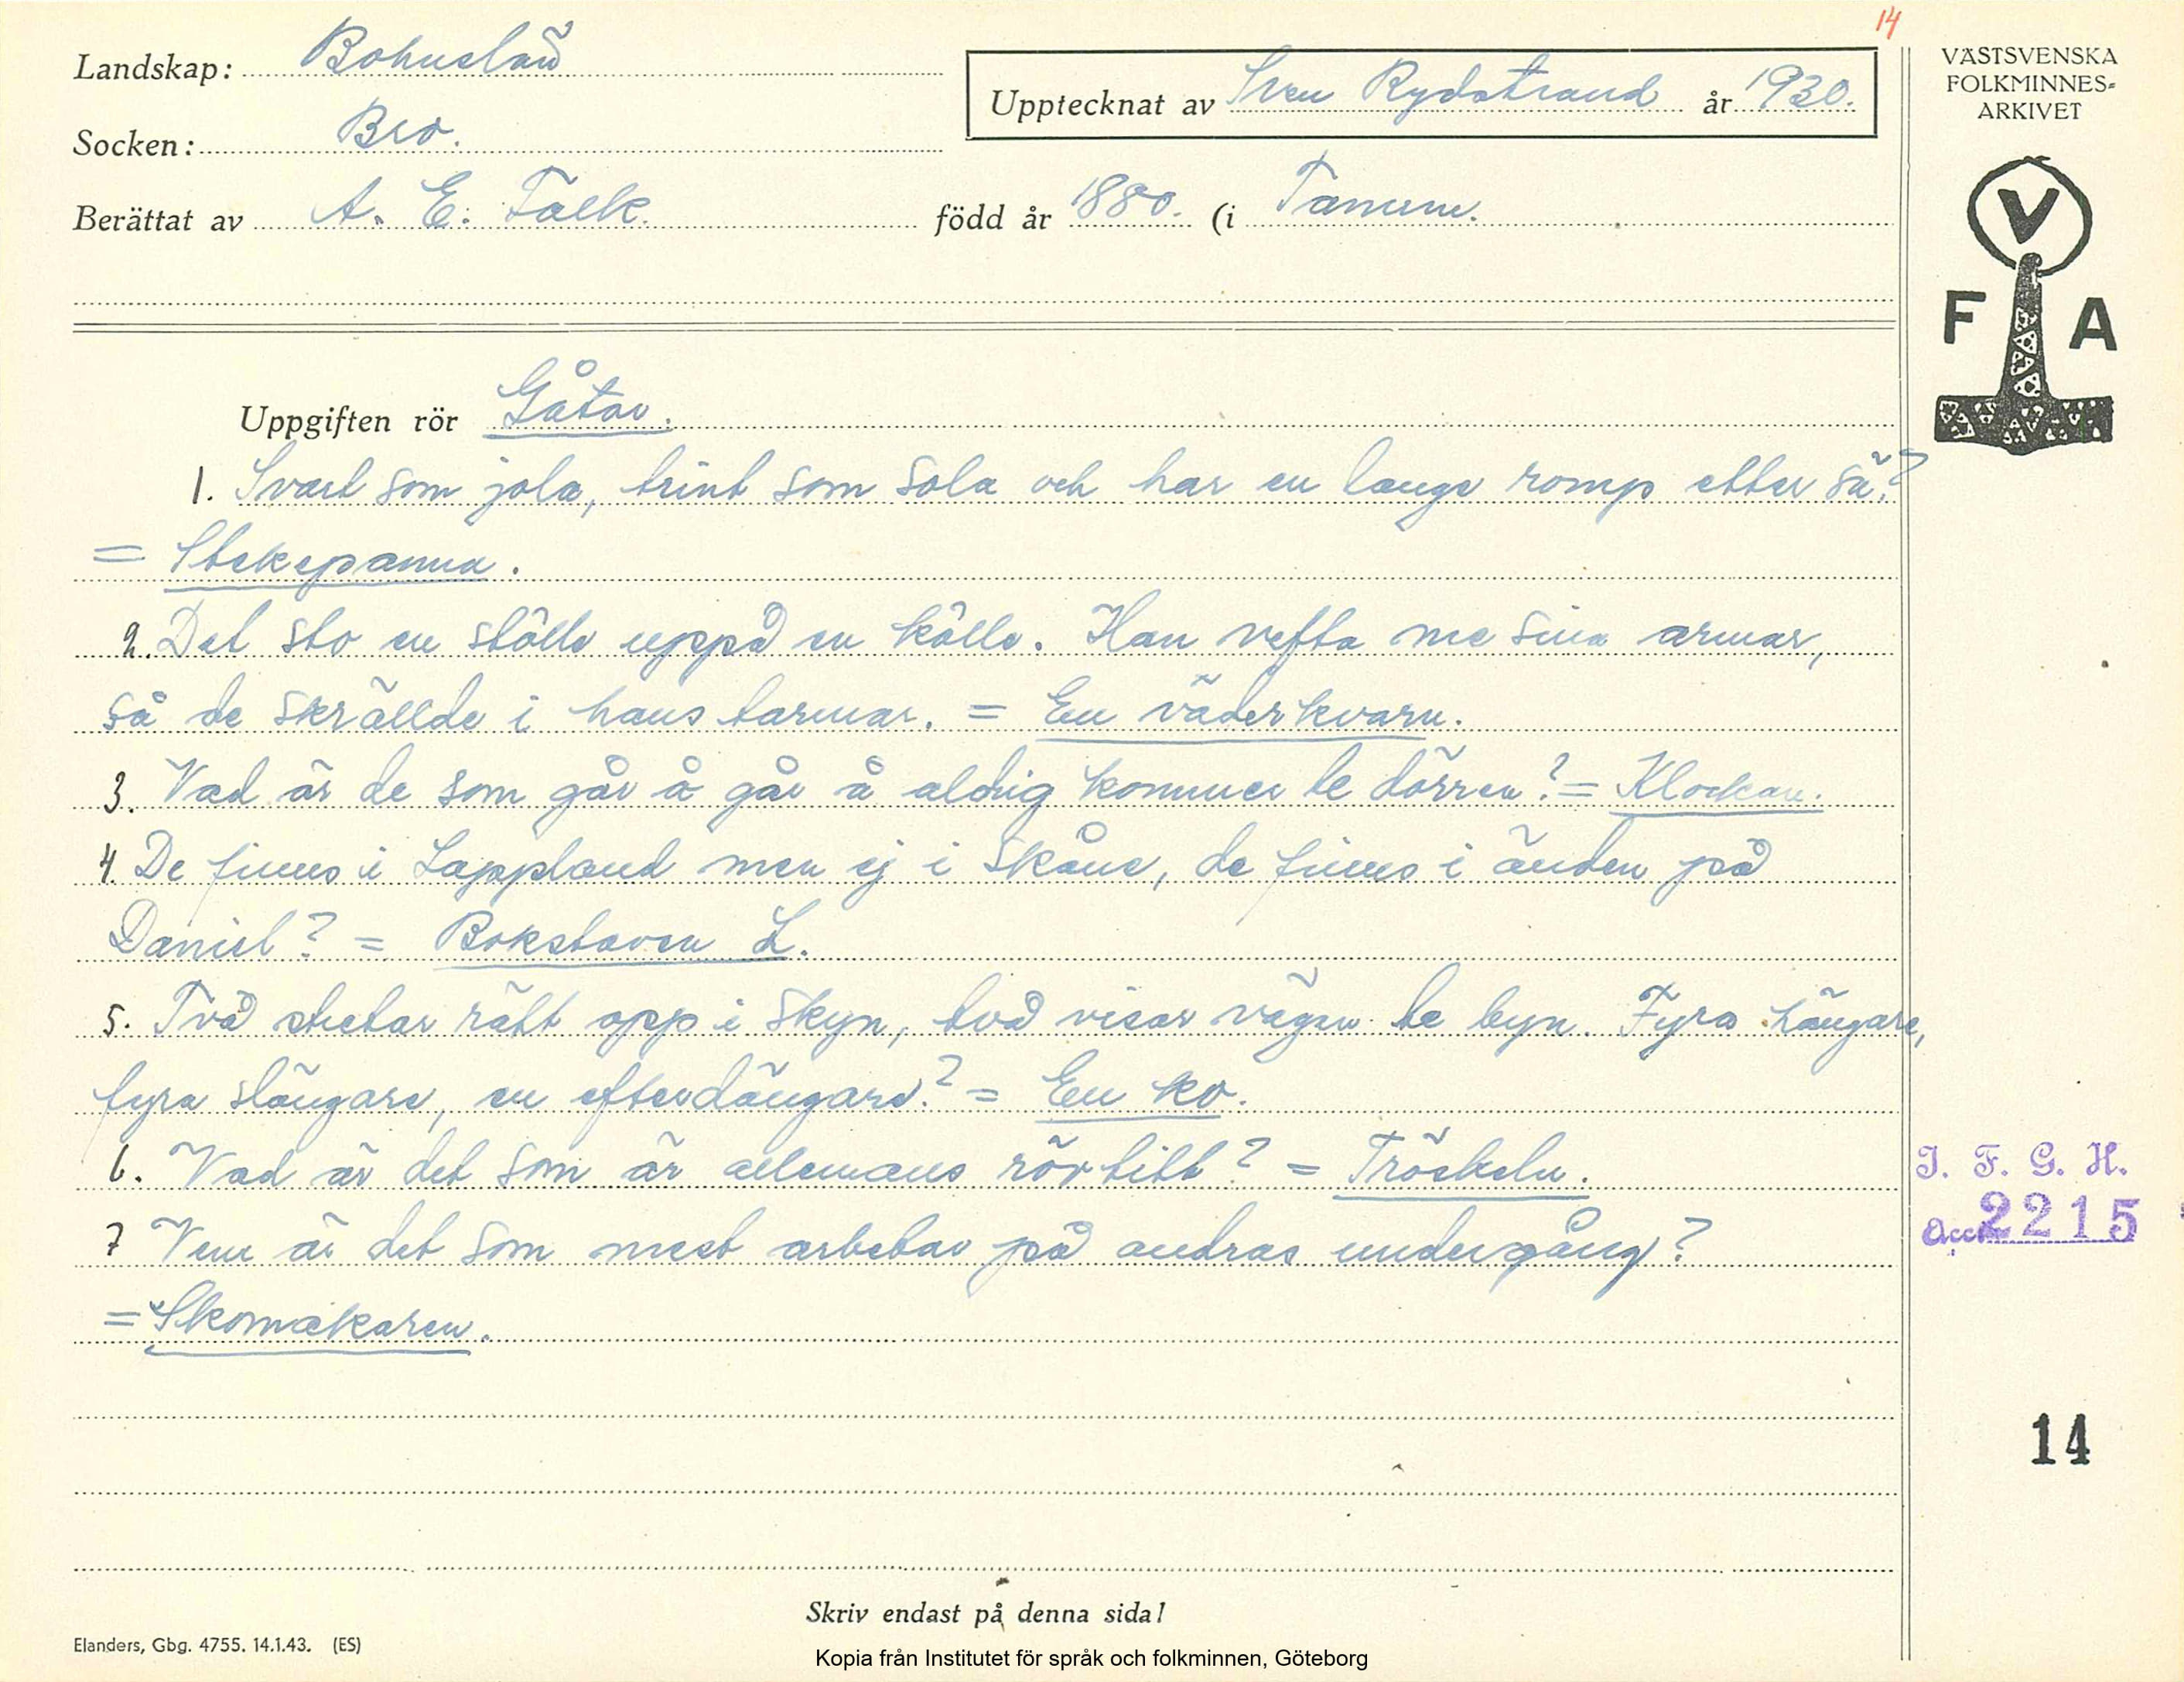 14
Landskap: Bohuslän
Upptecknat av Sven Rydstrand år 1930.
Socken: Bro.
Berättat av A. E. Falk. född år 1880. (i Tanum.
VÄSTSVENSKA
FOLKMINNES-
ARKIVET
V
F A
Uppgiften rör Gåtor.
1. Svart som jola, trint som sola och har en lange romp etter sä?
= Stekepanna.
2. Det sto en stôlle uppå en kôlle. Han vefta me sina armar,
så de skrällde i hans tarmar. = En väderkvarn.
3. Vad är de som går å går å aldrig kommer te dörren? = Klockan.
4. De finns i Lappland men ej i Skåne, de finns i änden på
Daniel? = Bokstaven L.
5. Två stretar rätt opp i skyn, två visar vägen te byn. Fyra hängare,
fyra slängare, en efterdängare? = En ko.
6. Vad är det som är allemans rövtitt? = Tröskeln.
7 Vem är det som mest arbetar på andras undergång?
= Skomakaren.
I. F. G. H.
Acc. 2215
14
Skriv endast på denna sida!
Elanders, Gbg. 4755. 14.1.43. (ES)
Kopia från Institutet för språk och folkminnen, Göteborg